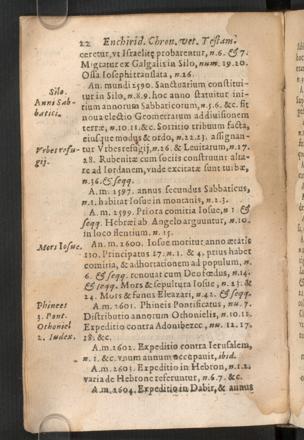 22 Enchirid. Chron. vet. Testam.
ceretur, vt Israelitę probarentur, n. 6. & 7.
Migratur ex Galgalis in Silo, num. 19. 20.
Ossa Iosephi translata, n. 26.
An. mundi 2590. Sanctuarium constitui-
tur in Silo, n. 8. 9. hoc anno statuitur ini-
tium annorum Sabbaticorum, n. 5. 6. &c. fit
noua electio Geometrarum ad diuisionem
terræ, n. 10. 11. &c. Sortitio tribuum facta,
eiusque modus & ordo, n. 22. 23. assignan-
tur Vrbes refugij, n. 26. & Leuitarum, n. 17.
28. Rubenitæ cum socijs construunt alta-
re ad Iordanem, vnde excitatæ sunt turbæ,
n. 36. & seqq.
A. m. 2597. annus secundus Sabbaticus,
n. 1. habitat Iosue in montanis, n. 2. 3.
A. m. 2599. Priora comitia Iosue, n. 1 &
seqq. Hebræi ab Angelo arguuntur, n. 10.
in loco flentium, n. 15.
An. m. 2600. Iosue moritur anno ætatis
110. Principatus 27. n. 1. & 4. prius habet
comitia, & adhortationem ad populum, n.
6. & seqq. renouat cum Deo fœdus, n. 14.
& seqq. Mors & sepultura Iosue, n. 23. &
24. Mors & funus Eleazari, n. 42. & seqq.
A. m. 2601. Phineis Pontificatus, nu. 7.
Distributio annorum Othonielis, n. 10. 11.
Expeditio contra Adonibezec, nu. 12. 17.
18. &c.
A. m. 2602. Expeditio contra Ierusalem,
n. 1. &c. vnum annum occupauit, ibid.
A. m. 2603. Expeditio in Hebron, n. 1. 2.
varia de Hebrone referuntur, n. 6. 7. &c.
A. m. 2604. Expeditio in Dabir, & annus
Silo.
Anni Sab-
batici.
Vrbes refu-
gij.
Mors Iosue.
Phinees
3. Pont.
Othoniel
2. Iudex.